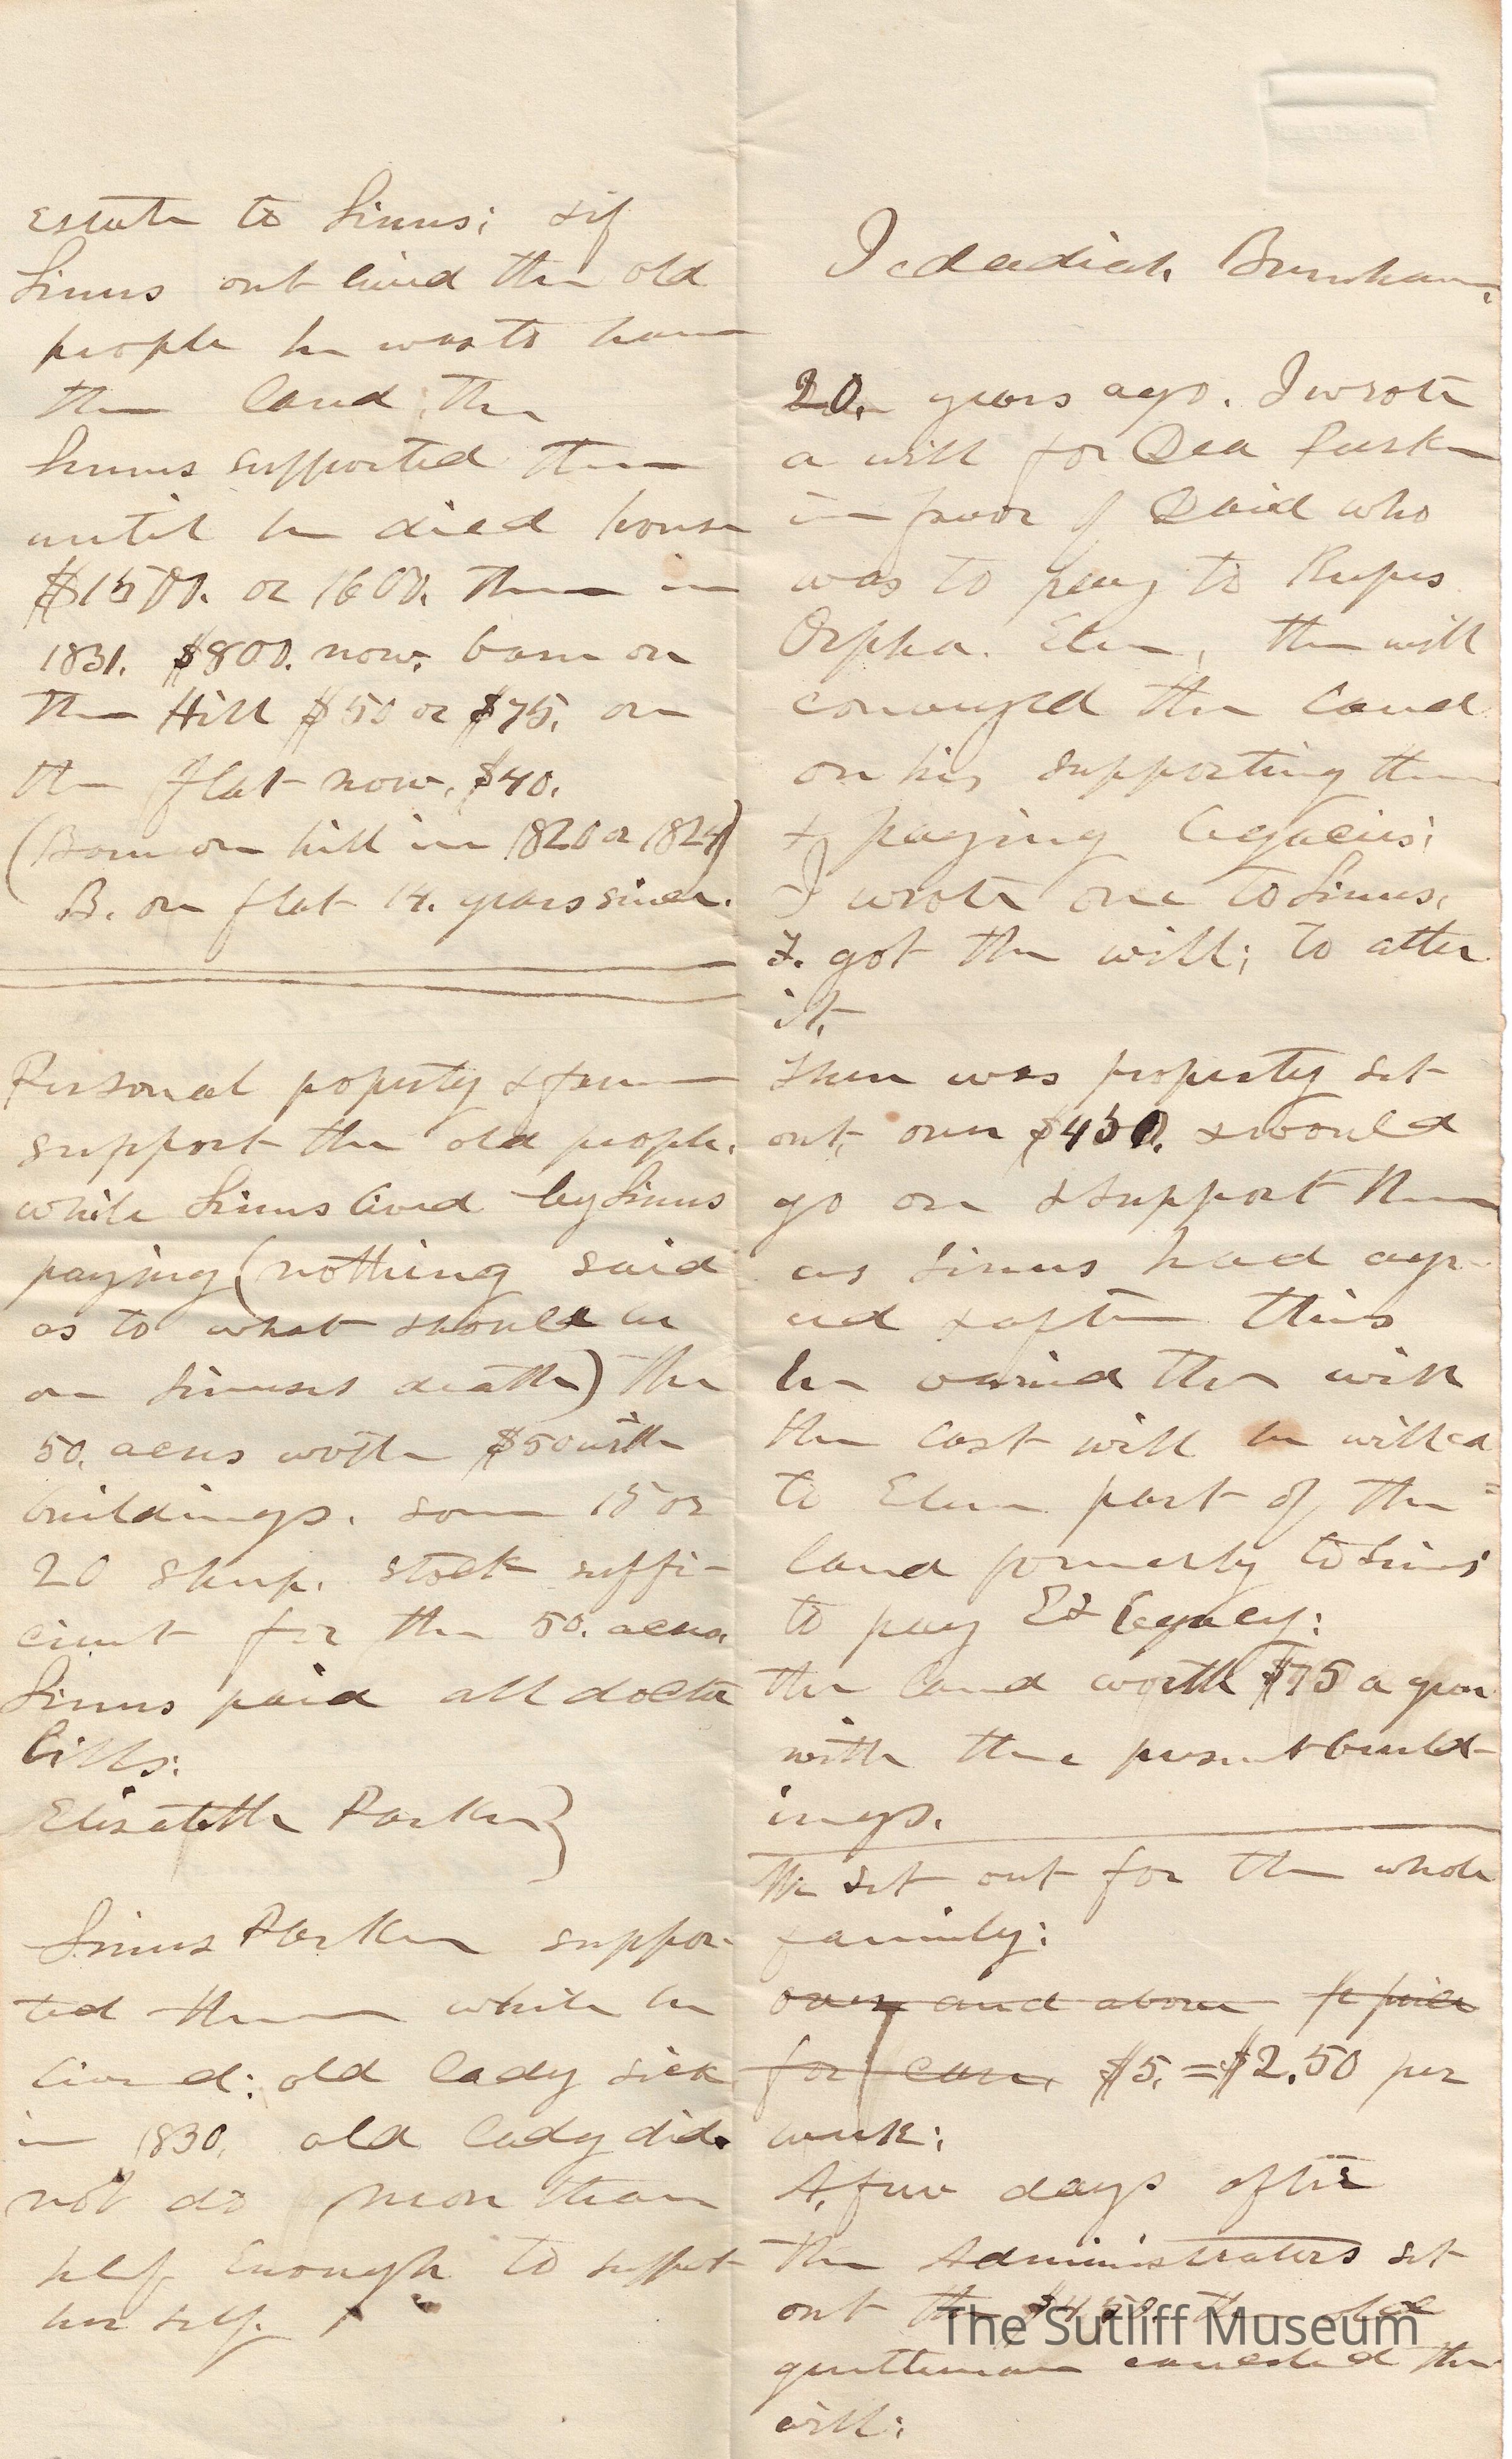 Estate to Linus; & if
Linus out lived the old
people he was to have
the land, the
Linus supported them
until he died house
$1500. or 1600. them in
1831. $800. now. barn on
the Hill $50 or $75. on
the flat now. $40.
(Barn on hill in 1820 or 1824)
B. on flat 14. years since.
Personal poperty & farm
support the old people.
while Linus lived by Linus
paying (nothing said
as to what should be
on Linuses death) the
50. acres woth $50 with
buildings. some 15 or
20 sheep. stock suffi-
cient for the 50. acres
Linus paid all doctor
bills:
Elisabeth Parker}
Linus Parker suppor-
ted them while he
lived: old lady sick
in 1830. old lady did
not do more than
half enough to support
her self.
Jedediah Burnham.
20. years ago. I wrote
a will for Dea Parker
in favor of David who
was to pay to Rufus
Orpha. Eben, the will
conveyed the land
on his supporting them
& paying legacies;
I wrote one to Linus.
I. got the will; to alter
it.
There was property set
out, over $450. & would
go on & support them
as Linus had agr-
eed & after this
he varied the will
the last will he willed
to Eben part of the
land formerly to Linus
to pay E's legacy:
the land worth $75 a year
with the present build-
ings.
We set out for the whole
family:
over and above
for care. $5. = $2.50 per
week:
A few days after
the Administrators set
out the $450. the old
gentleman canceled the
will:
The Sutliff Museum